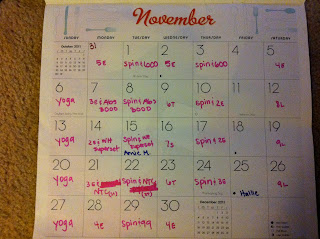 November
SUNDAY MONDAY TUESDAY WEDNESDAY THURSDAY FRIDAY SATURDAY
October 2011 31 1 2 3 4 5
5E Spin+600 5E Spin+600 4E
6 7 8 9 10 11 12
Yoga 3E+Abs Spin+Abs 6T Spin+2E 8L
3000 3000
13 14 15 16 17 18 19
Yoga Spin+ 7S Spin+2E 9L
Superset Superset
Annie M.
20 21 22 23 24 25 26
Yoga 3E+ Spin+NTC 6T Spin+3E Hallie 9L
NTC
27 28 29 30 December 2011
Yoga 4E Spin+99 4E